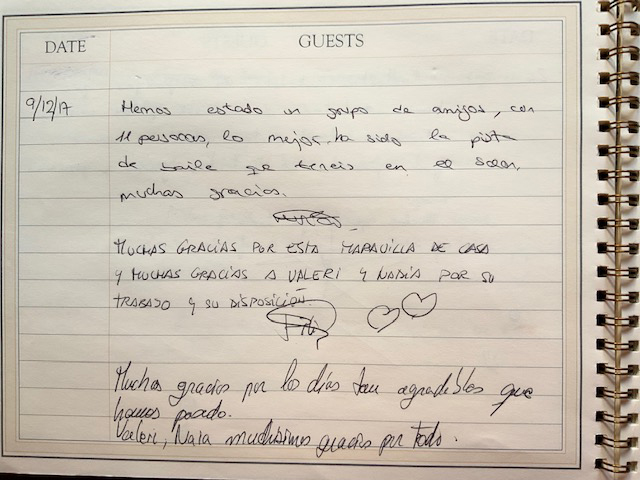 DATE GUESTS
9/12/17 Hemos estado un grupo de amigos, con
11 personas, lo mejor ha sido la pista
de baile qe teneis en el salon,
muchas gracias.
MUCHAS GRACIAS POR ESTA MARAVILLA DE CASA
Y MUCHAS GRACIAS A VALERI Y NADIA POR SU
TRABAJO Y SU DISPOSICIÓN.
Muchas gracias por los días tan agradables que
hemos pasado.
Valeri, Naia muchisimas gracias por todo.